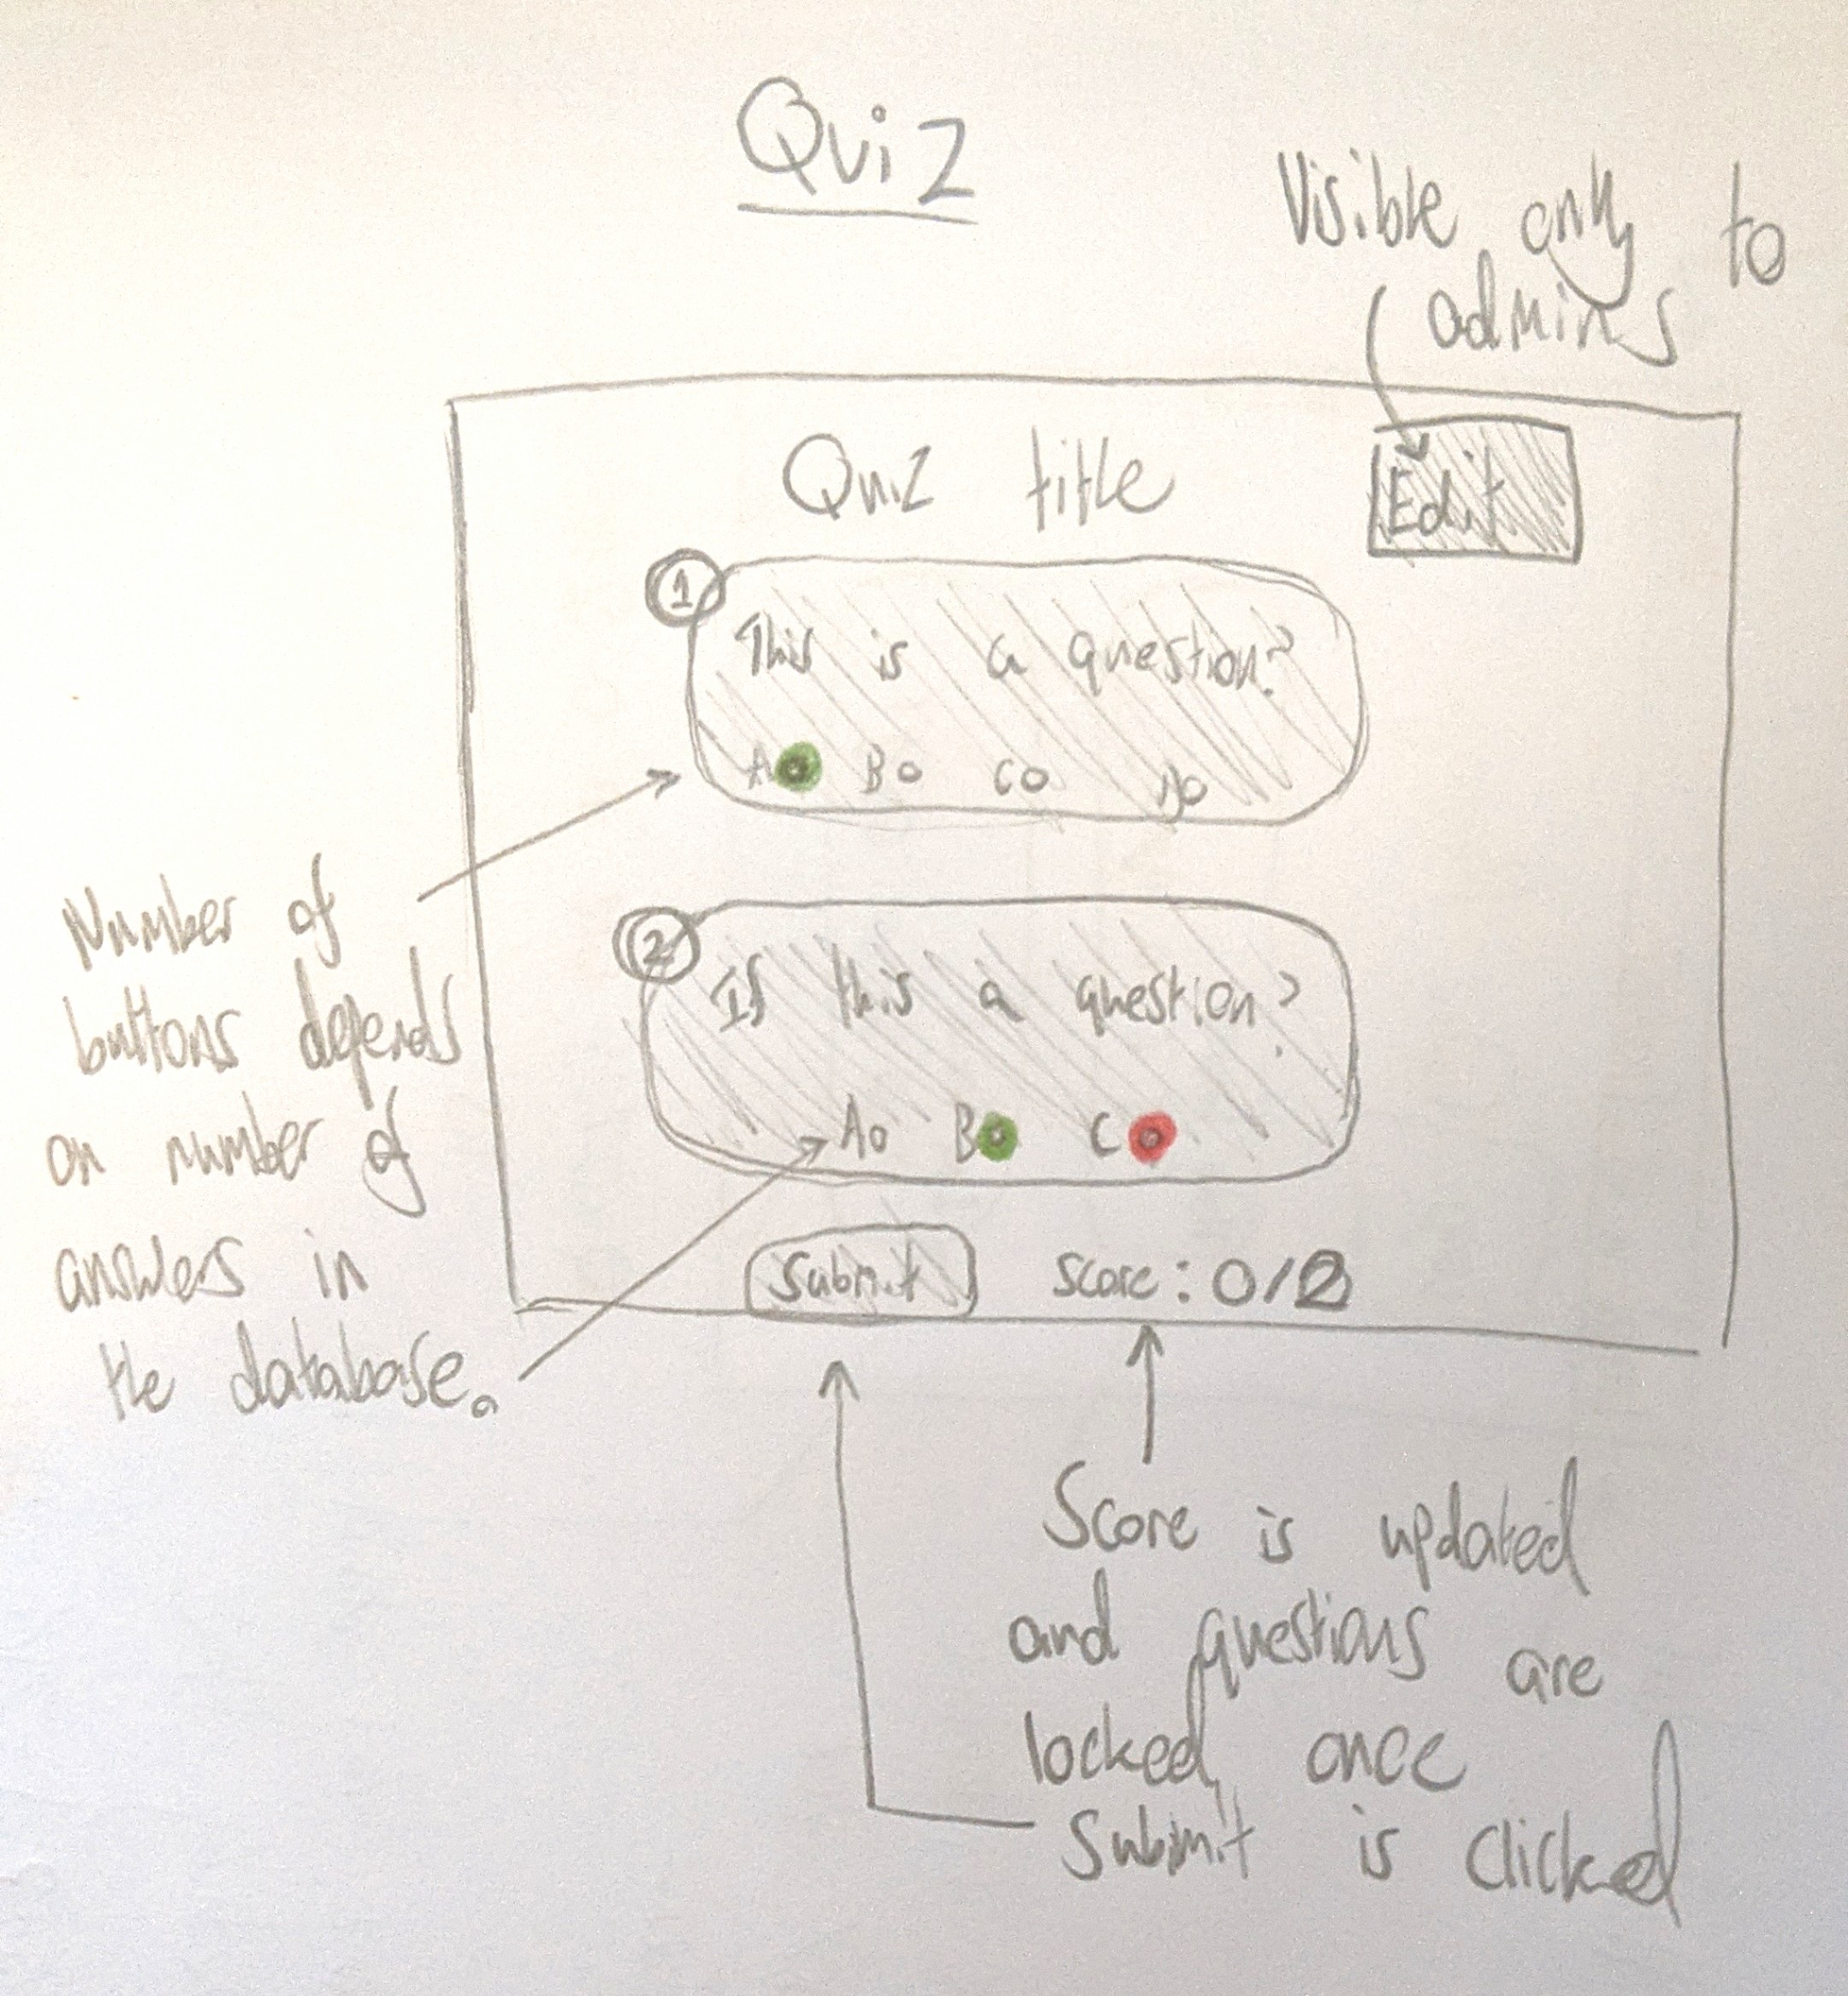 Quiz
Visible only to
admins
Quiz title
Edit
1
This is a question?
A B C D
Number of
buttons depends
on number of
answers in
the database.
2
If this a question?
A B C
Submit Score: 0/2
Score is updated
and questions are
locked, once
Submit is clicked